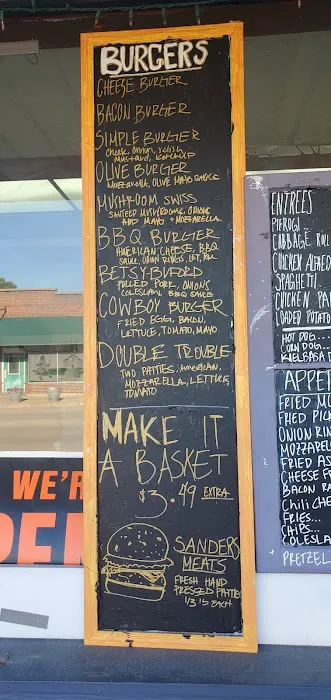 BURGERS
CHEESE BURGER
BACON BURGER
SIMPLE BURGER
Cheek, Onion, relish,
Mustard, Ketchup
OLIVE BURGER
Mozzarella, Olive Mayo Sauce
MUSHROOM SWISS
Sauteed Mushrooms, Onions
and Mayo + Mozzarella
BBQ BURGER
American Cheese, BBQ
Sauce, Onion Rings, Let, Tom
BETSY-BUFORD
Pulled Pork, Onions
Coleslaw, BBQ Sauce
COWBOY BURGER
Fried Egg, Bacon,
Lettuce, Tomato, Mayo
DOUBLE TROUBLE
Two Patties, American,
Mozzarella, Lettuce,
Tomato
MAKE IT
A BASKET
$3.49 EXTRA
SANDERS
MEATS
FRESH HAND
PRESSED PATTIES
1/3 lb EACH
WE'R
ENTREES
PIEROGI
CABBAGE ROLL
CHICKEN ALFREDO
SPAGHETTI
CHICKEN PA
LOADED POTATO
HOT DOG...
CORN DOG...
KIELBASA D
APPET
FRIED MU
FRIED PIC
ONION RIN
MOZZAREL
FRIED AS
CHEESE F
BACON RA
Chili CHE
FRIES...
CHIPS...
COLESLA
+ PRETZEL